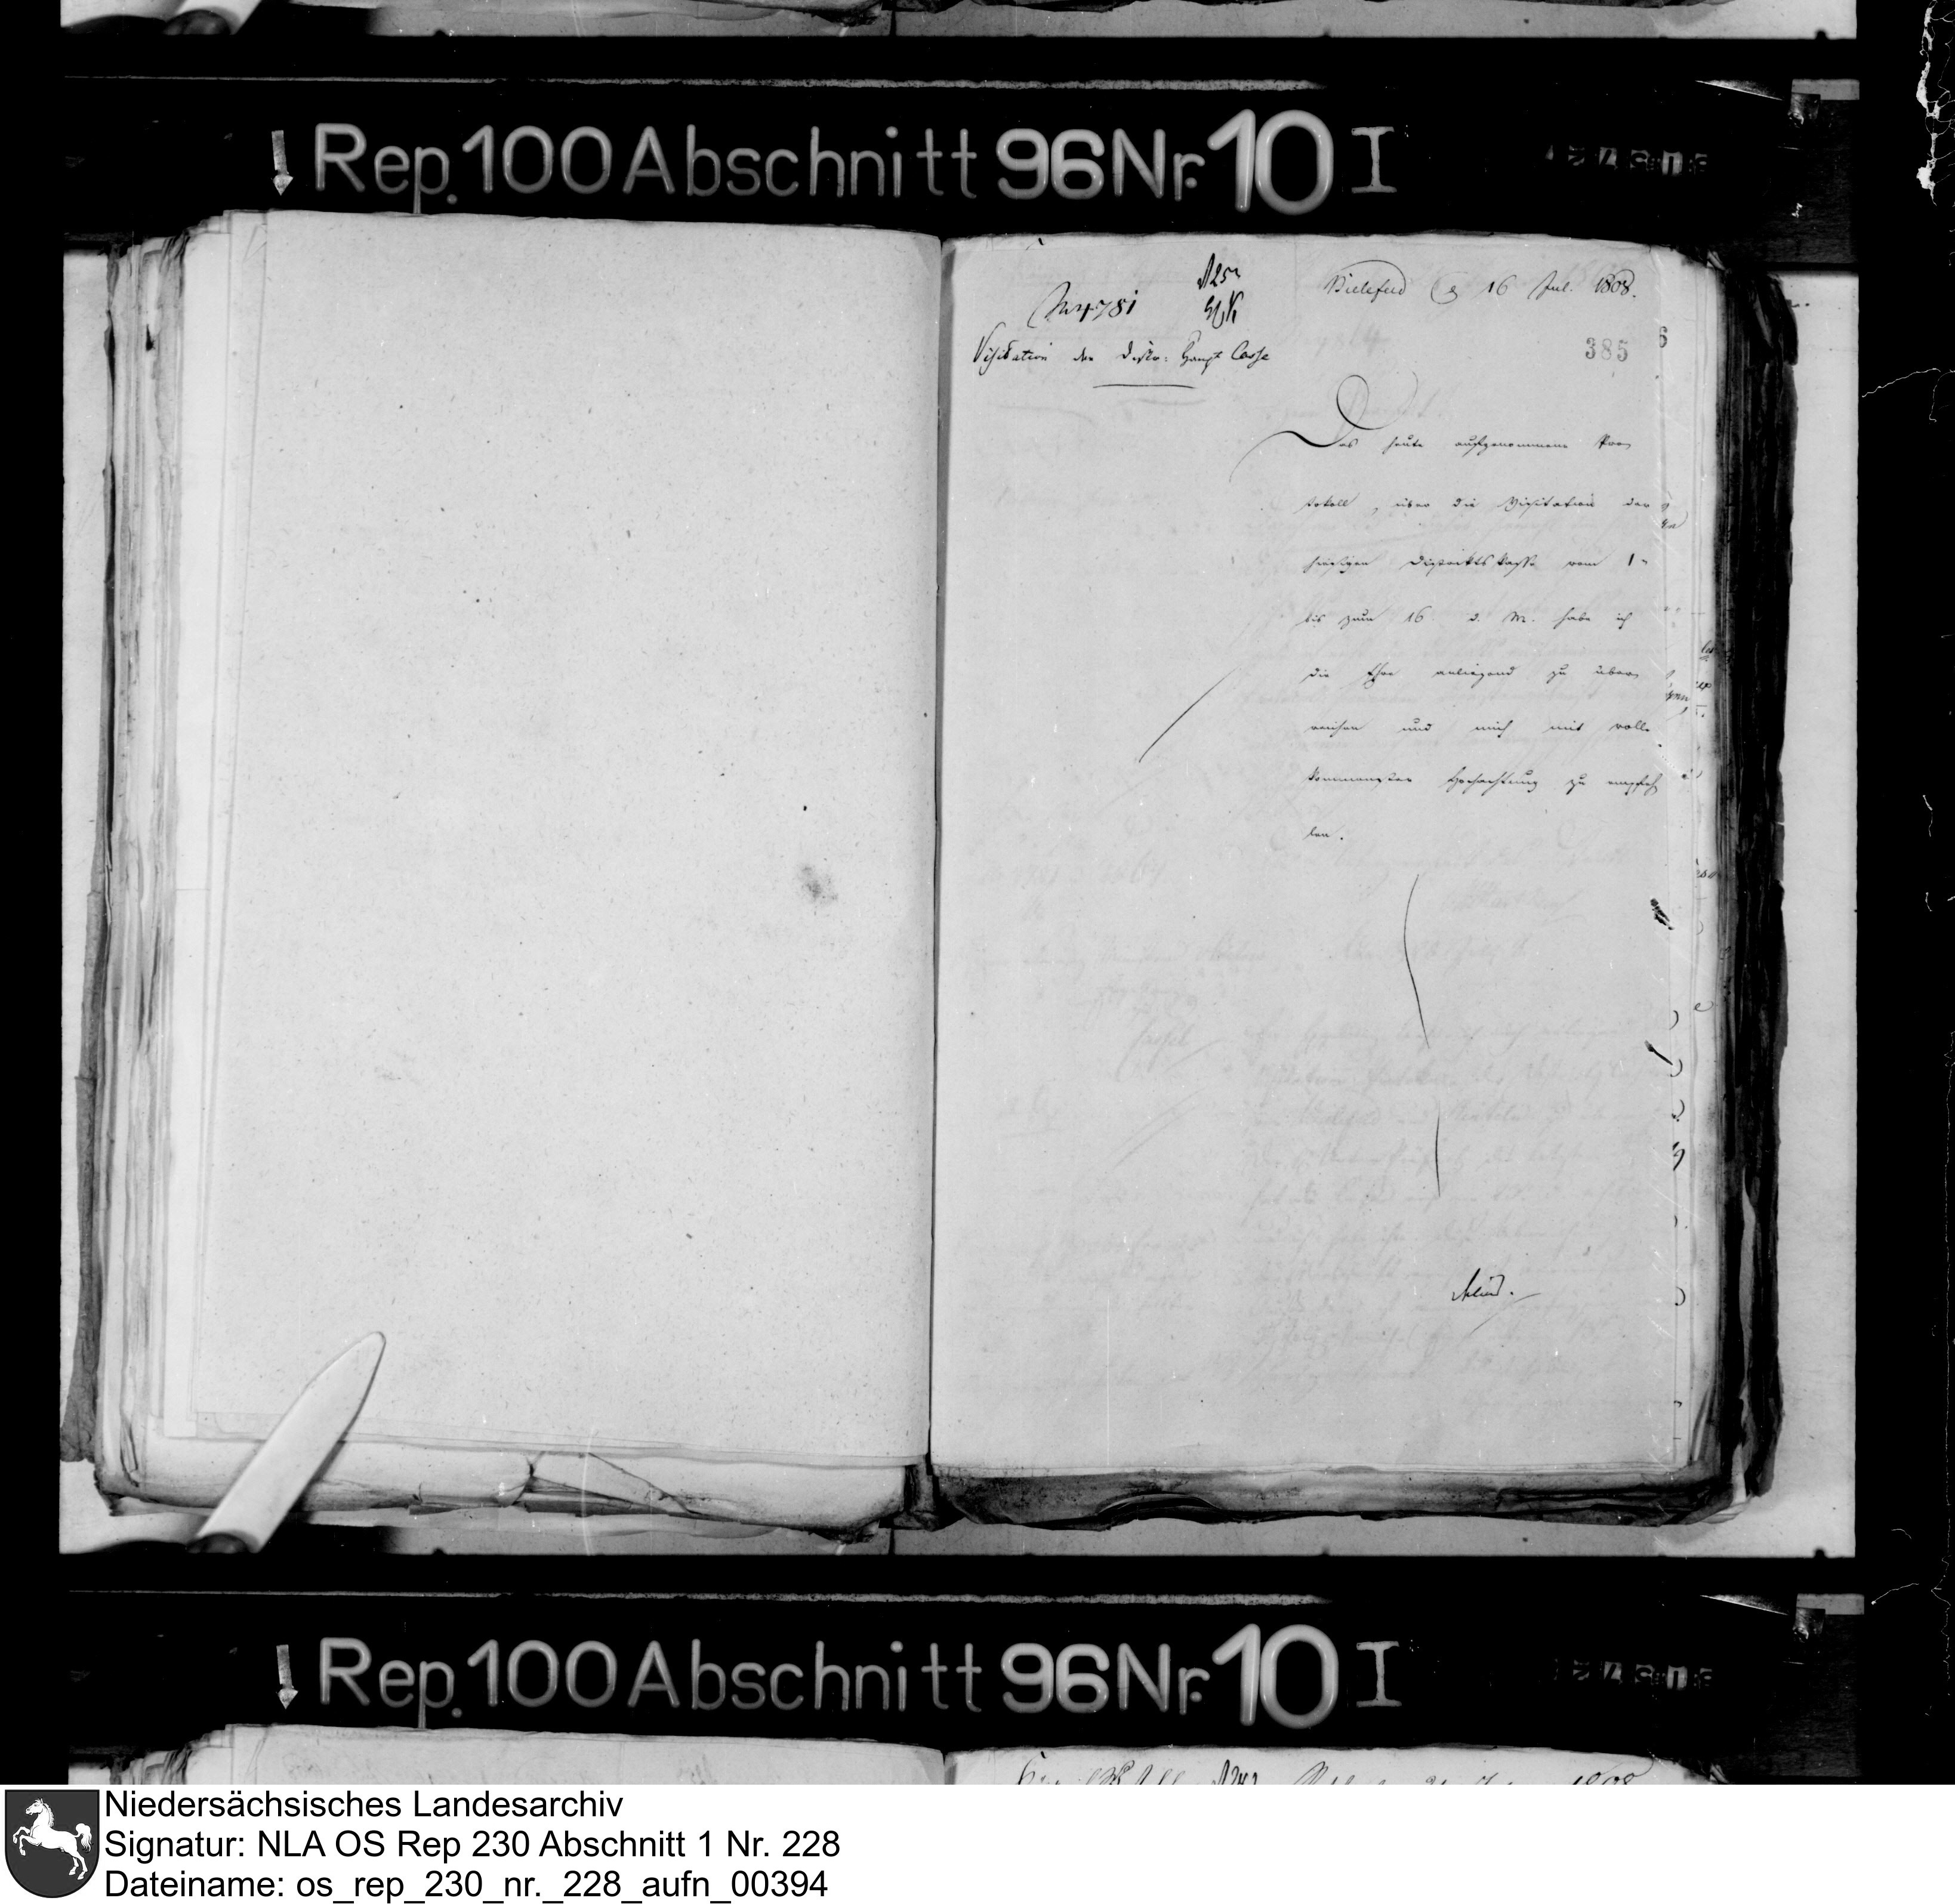 Rep. 100 Abschnitt 96 Nr. 10 I
Bielefeld 16 Jul. 1808.
No 4781
385
6
Visitation der Distr: Haupt Casse
Das heute aufgenommene Pro
tokoll, über die Visitation der
hiesigen Districtskasse vom 1
bis zum 16 d. M. habe ich
die Ehre anliegend zu über
reichen und mich mit voll
kommenster Hochachtung zu empfeh
len.
Rep. 100 Abschnitt 96 Nr. 10 I
Niedersächsisches Landesarchiv
Signatur: NLA OS Rep 230 Abschnitt 1 Nr. 228
Dateiname: os_rep_230_nr._228_aufn_00394